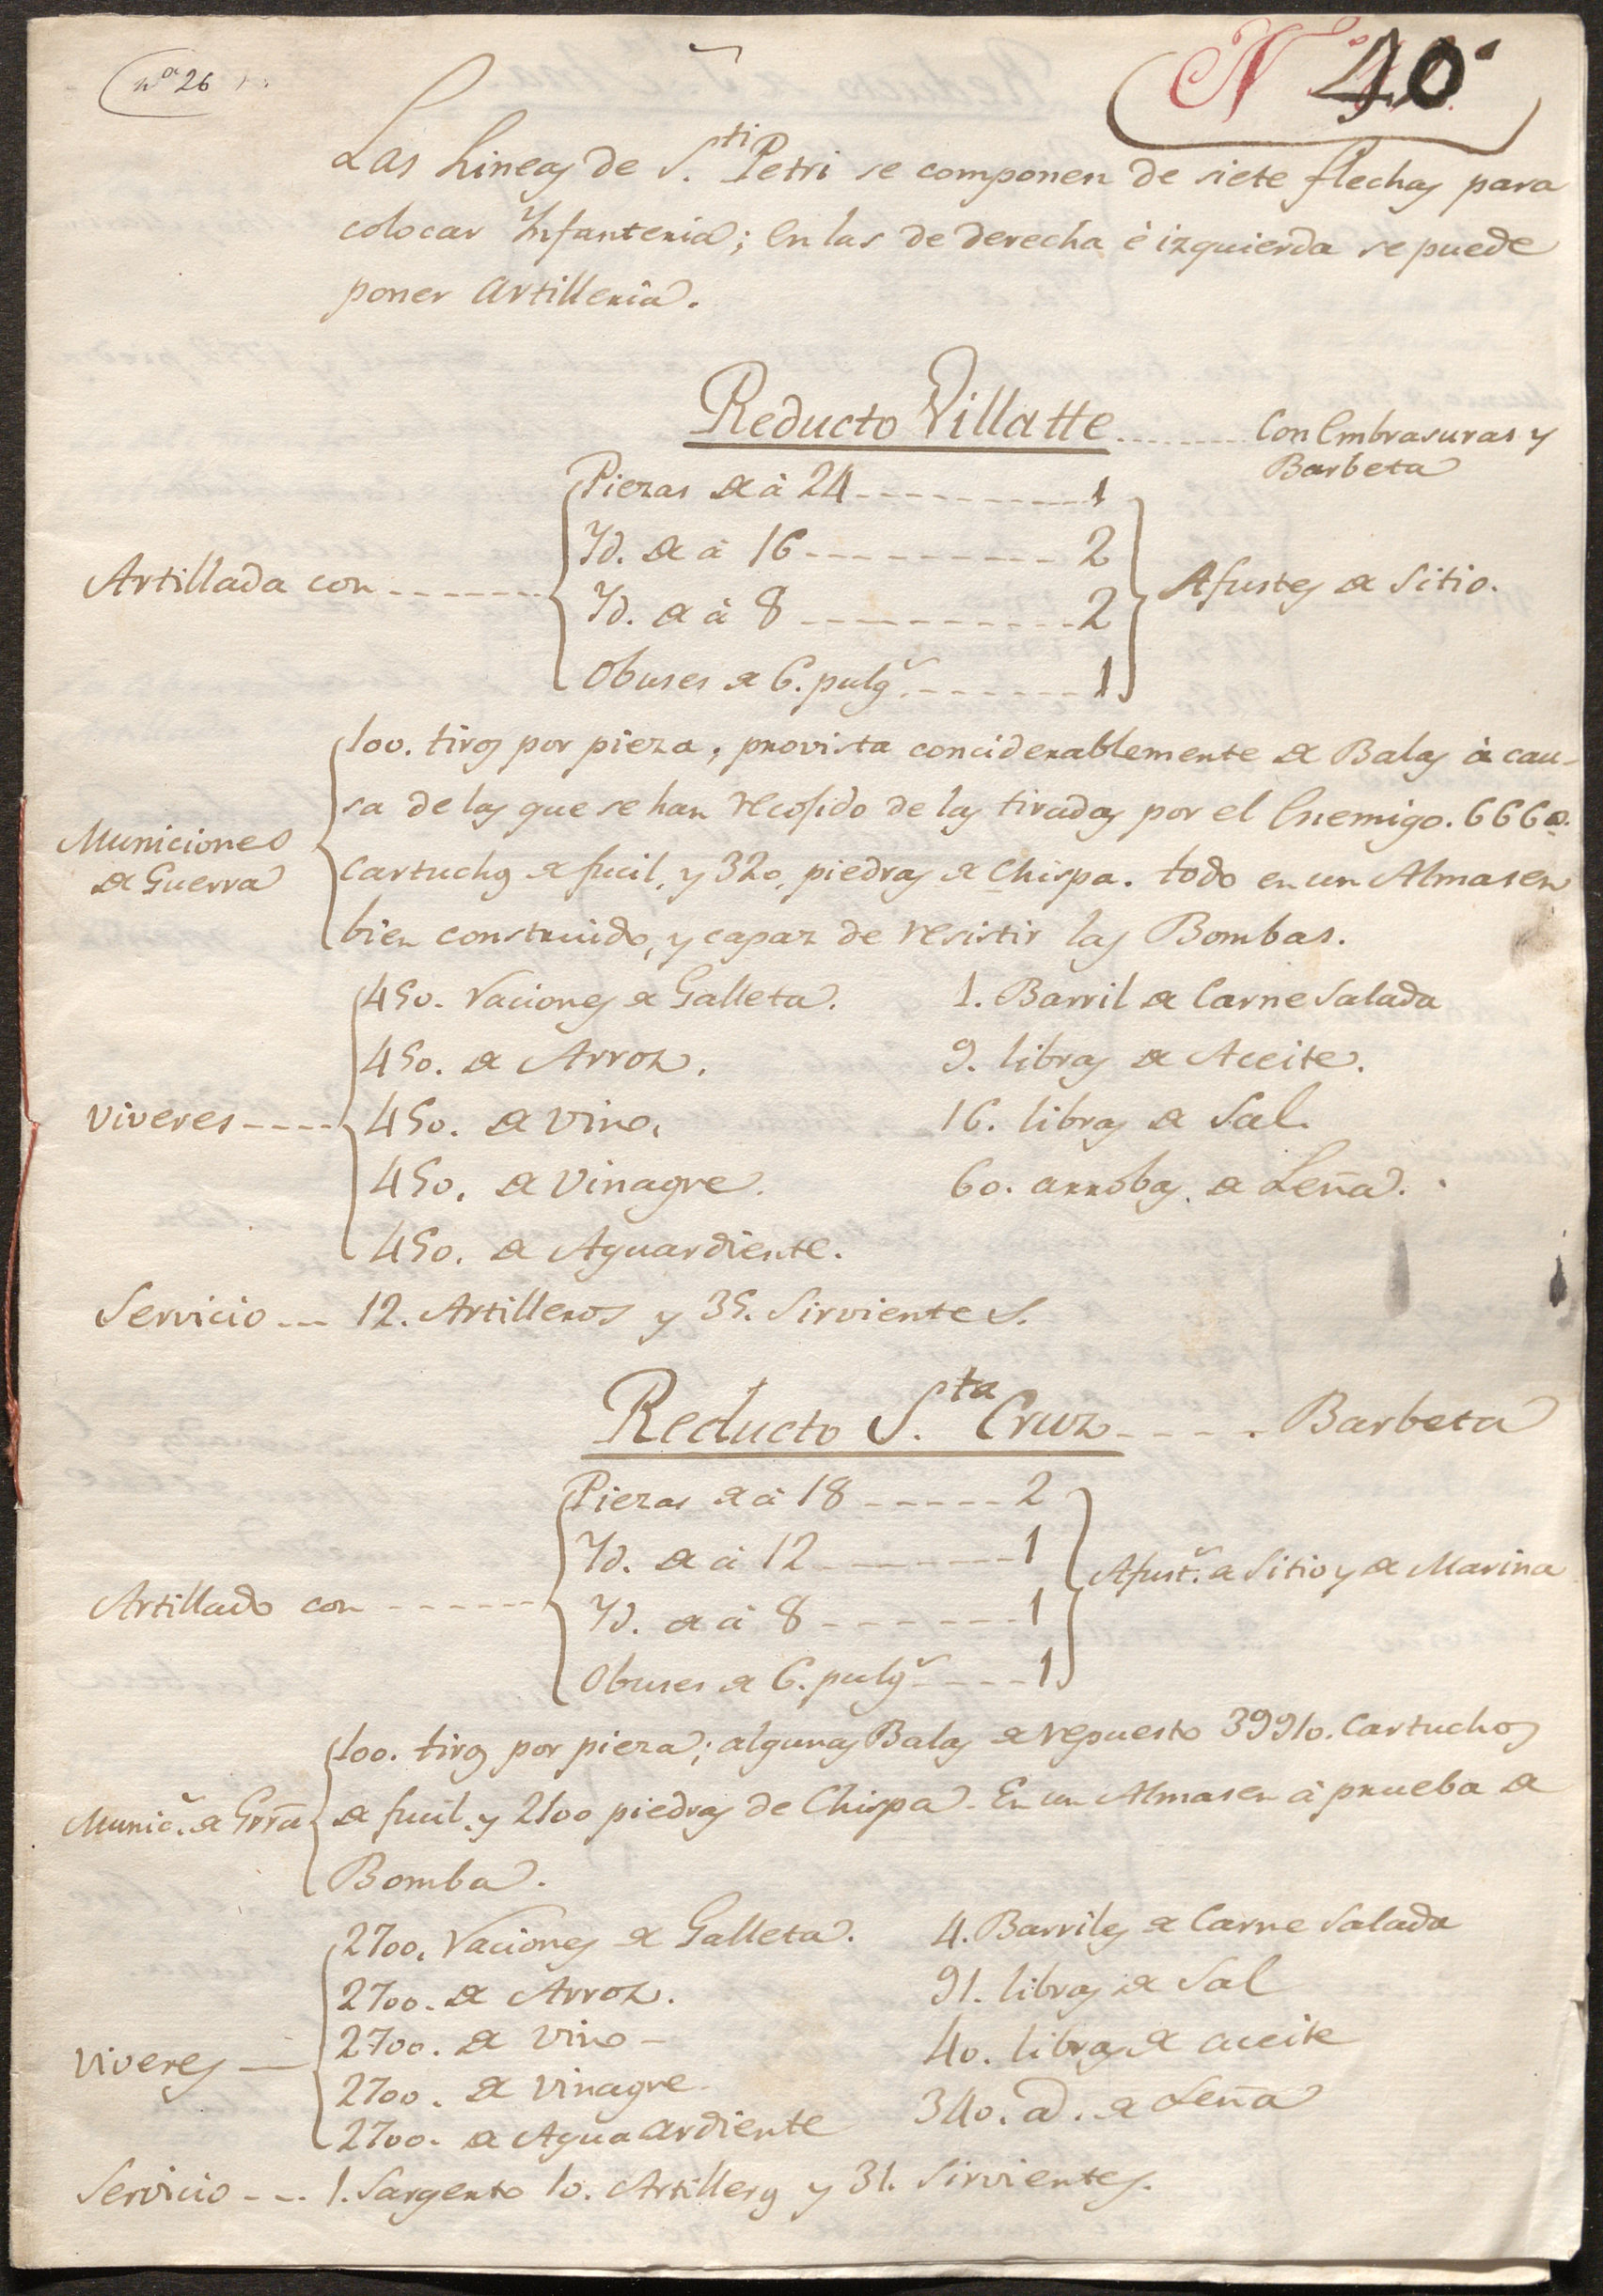 nº 26
Nº 40
Las Lineas de S.ti Petri se componen de siete flechas para
colocar Infanteria; en las de derecha è izquierda se puede
poner Artilleria.
Reducto Villatte ........ Con Embrasuras y
Barbeta
Piezas de à 24 ---------- 1
Yd. de à 16 ---------- 2
Artillada con ------- Afustes de Sitio.
Yd. de à 8 ---------- 2
Obuses de 6. pulg.s ------- 1
100. tiros por pieza; provista conciderablemente de Balas à cau-
sa de las que se han recojido de las tiradas por el Enemigo. 6660.
Municiones
de Guerra
cartuchos de fucil, y 320, piedras de Chispa. todo en un Almasen
bien construido, y capaz de resistir las Bombas.
450. raciones de Galleta. 1. Barril de Carne Salada
450. de Arroz. 9. libras de Aceite.
Viveres ---- 450. de Vino. 16. libras de Sal.
450. de Vinagre. 60. arrobas de Leña.
450. de Aguardiente.
Servicio --- 12. Artilleros y 35. Sirvientes.
Reducto S.ta Cruz ---- Barbeta
Piezas de à 18 ----- 2
Yd. de à 12 ------- 1
Artillado con ------ Afust.s de Sitio y de Marina
Yd. de à 8 ------ 1
Obuses de 6. pulg.s ---- 1
100. tiros por pieza; algunas Balas de repuesto 39910. Cartuchos
Munic.s de Grrã de fucil. y 2100 piedras de Chispa. En un Almasen à prueba de
Bomba.
2700. raciones de Galleta. 4. Barriles de Carne Salada
2700. de Arroz. 91. libras de Sal
Viveres -- 2700. de Vino - 40. libras de aceite
2700. de Vinagre. 340. @. de Leña
2700. de Aguaardiente
Servicio --- 1. Sargento 10. Artilleros y 31. Sirvientes.